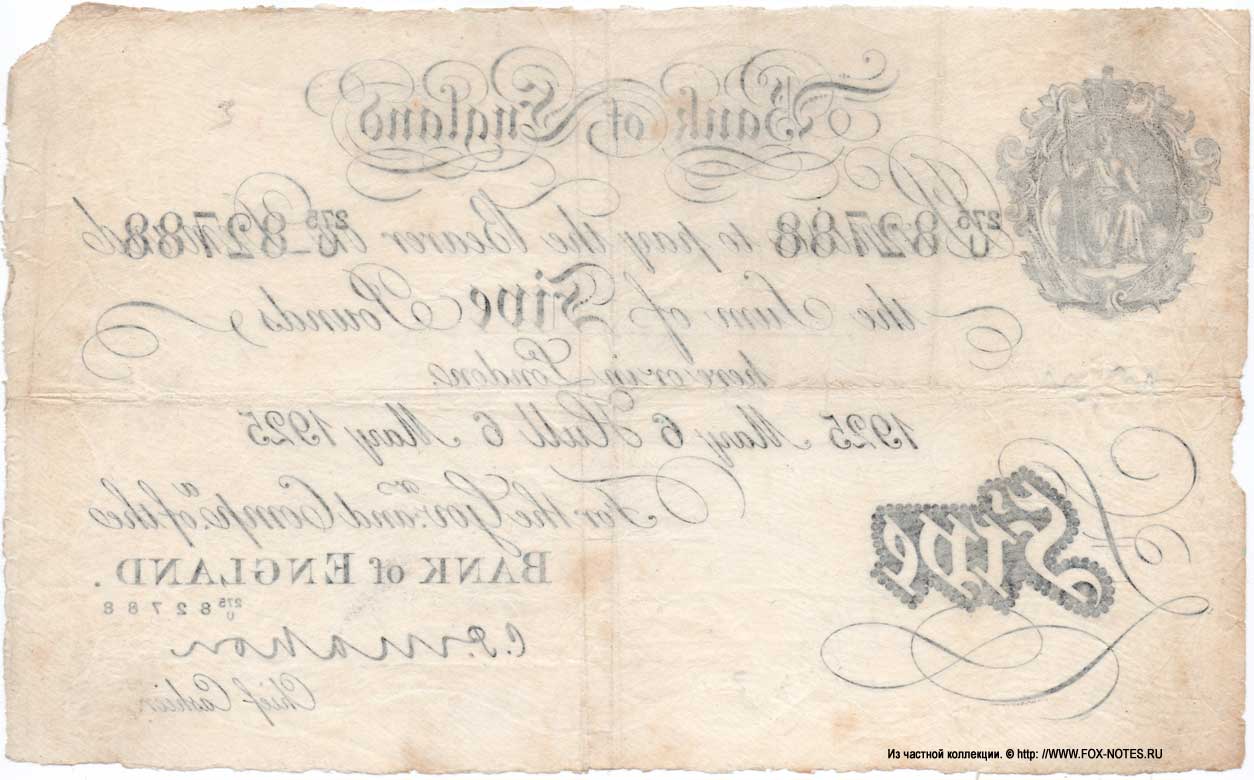 Bank of England
275/U 82788 to pay the Bearer 275/U 82788
the Sum of Five Pounds
here or in London
1925 May 6 Hull 6 May 1925
For the Govr. and Compa. of the
BANK of ENGLAND.
275/U 82788
C.P. Mahon
Chief Cashier.
£Five
Из частной коллекции. © http: //WWW.FOX-NOTES.RU